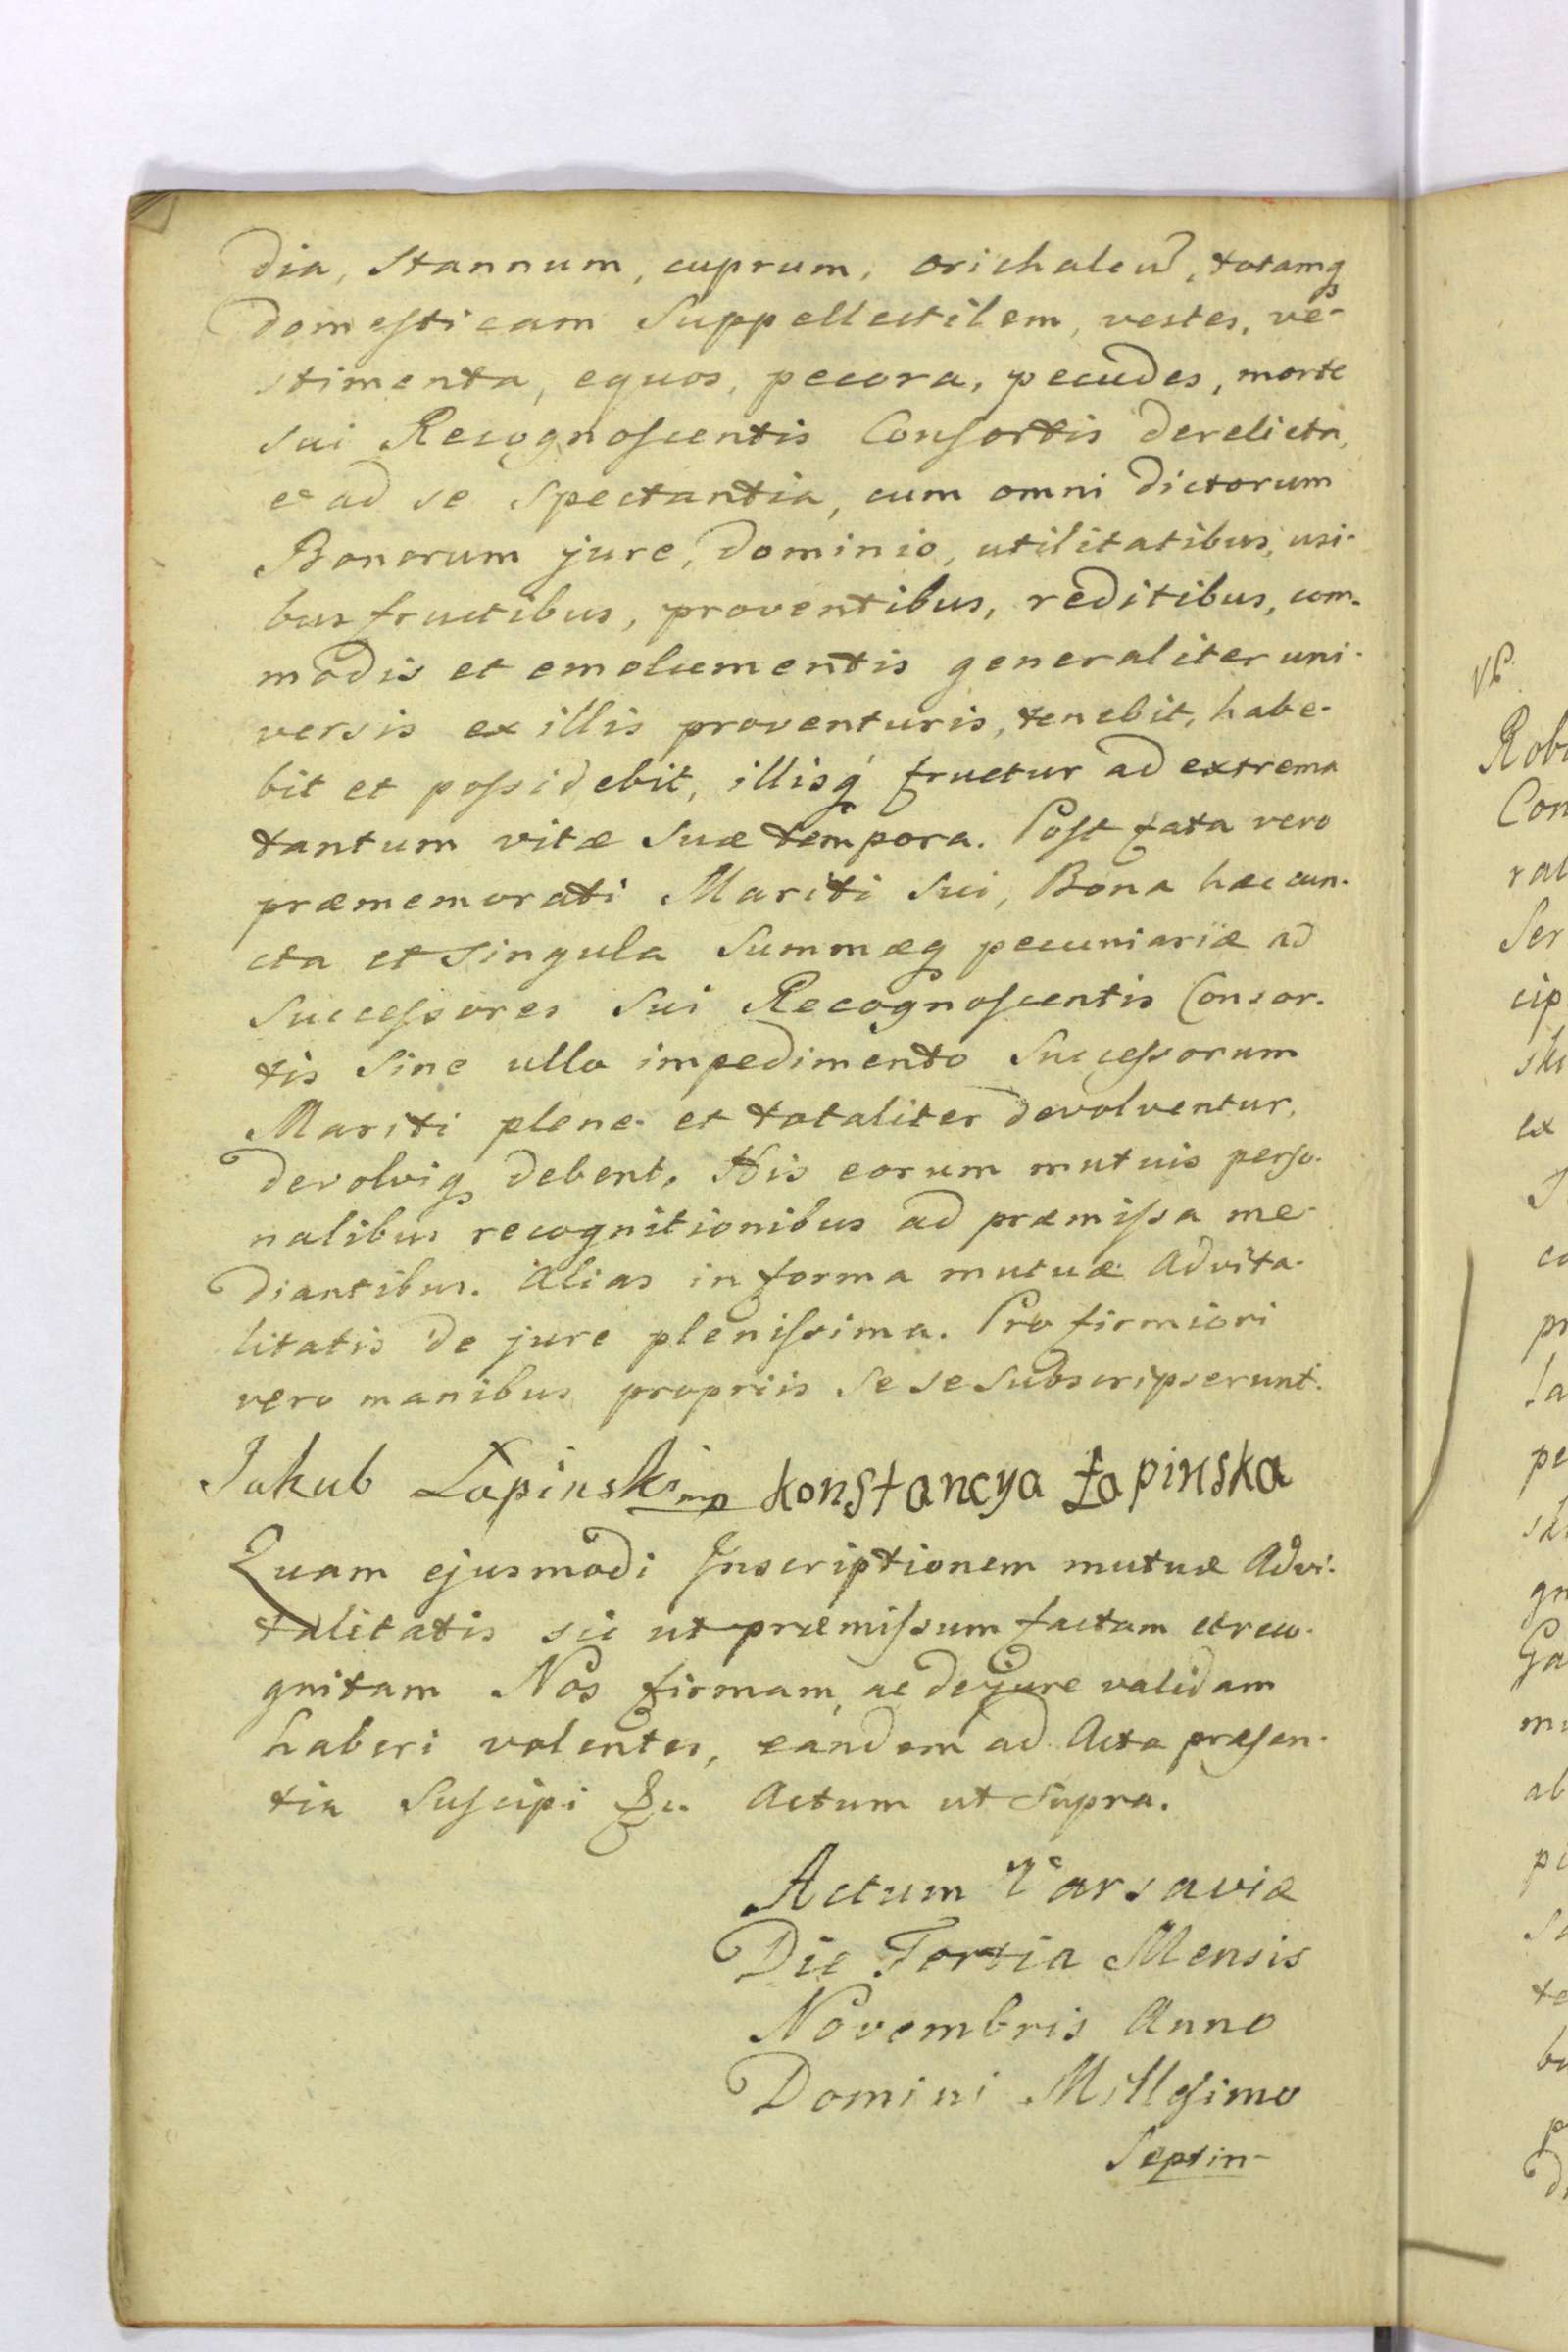 dia, Stannum, cuprum, orichalcu̅, totamq̨
domesticam Suppellectilem, vestes, ve-
stimenta, equos, pecora, pecudes, morte
sui Recognoscentis Consortis derelicta,
et ad se Spectantia, cum omni dictorum
Bonorum jure, dominio, utilitatibus, usi-
bus fructibus, proventibus, reditibus, com-
modis et emolumentis generaliter uni-
versis ex illis proventuris, tenebit, habe-
bit et possidebit, illisq̨ fruetur ad extrema
tantum vitæ Suæ tempora. Post fata vero
præmemorati Mariti Sui, Bona hæc cun-
cta et Singula Summæq̨ pecuniariæ ad
Successores Sui Recognoscentis Consor-
tis Sine ullo impedimento Successorum
Mariti plene et totaliter devolventur,
devolviq̨ debent. His eorum mutuis perso-
nalibus recognitionibus ad præmissa me-
diantibus. Alias in forma mutuæ Advita-
litatis de jure plenissima. Pro firmiori
vero manibus propriis Se se Subscripserunt.
Jakub Łapinski mp Konstancya Łapinska
Quam ejusmodi Inscriptionem mutuæ Advi-
talitatis sic ut præmissum factam et reco-
gnitam Nos firmam, ac de jure validam
haberi volentes, eandem ad Acta præsen-
tia Suscipi &c. Actum ut Supra.
Actum Varsaviæ
Die Tertia Mensis
Novembris Anno
Domini Millesimo
Septin-
Rob
Con
ral
Ser
cip
ski
ex
co
pr
la
pe
gn
Ga
ab
te